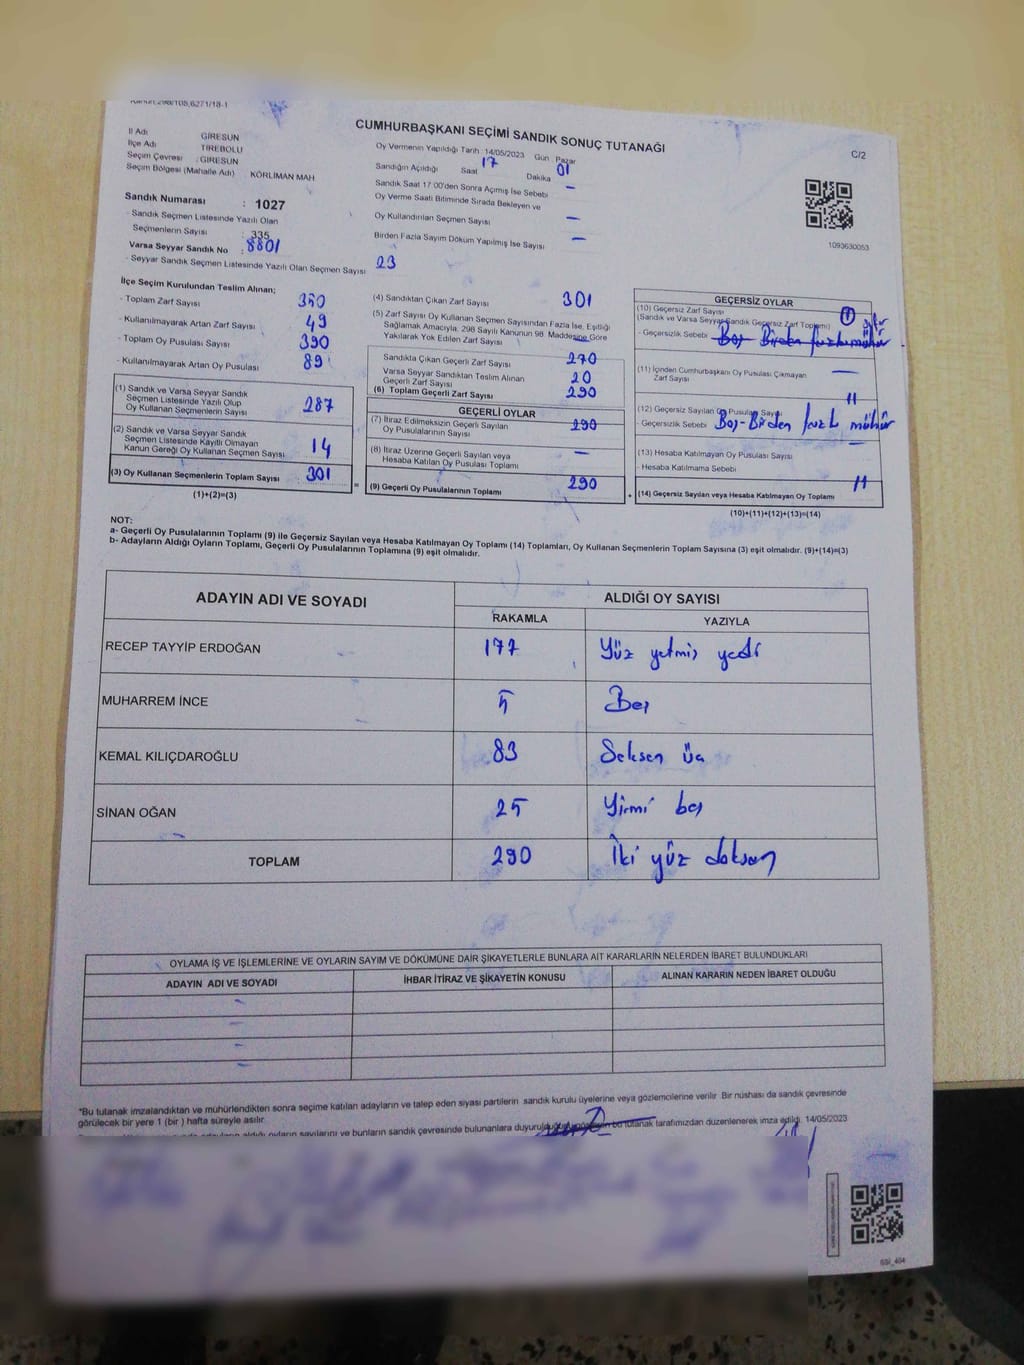 Kanun:298/108,6271/18-1
CUMHURBAŞKANI SEÇİMİ SANDIK SONUÇ TUTANAĞI
C/2
İl Adı GİRESUN
İlçe Adı TİREBOLU
Seçim Çevresi : GİRESUN
Seçim Bölgesi (Mahalle Adı) KÖRLİMAN MAH
Sandık Numarası : 1027
- Sandık Seçmen Listesinde Yazılı Olan
Seçmenlerin Sayısı : 335
Varsa Seyyar Sandık No : 8801
- Seyyar Sandık Seçmen Listesinde Yazılı Olan Seçmen Sayısı 23
Oy Vermenin Yapıldığı Tarih 14/05/2023 Gün Pazar
Sandığın Açıldığı Saat 17 Dakika 01
Sandık Saat 17:00'den Sonra Açılmış İse Sebebi –
Oy Verme Saati Bitiminde Sırada Bekleyen ve
Oy Kullandırılan Seçmen Sayısı –
Birden Fazla Sayım Döküm Yapılmış İse Sayısı –
1093630053
İlçe Seçim Kurulundan Teslim Alınan;
- Toplam Zarf Sayısı 350
- Kullanılmayarak Artan Zarf Sayısı 49
- Toplam Oy Pusulası Sayısı 390
- Kullanılmayarak Artan Oy Pusulası 89
(1) Sandık ve Varsa Seyyar Sandık
Seçmen Listesinde Yazılı Olup
Oy Kullanan Seçmenlerin Sayısı 287
(2) Sandık ve Varsa Seyyar Sandık
Seçmen Listesinde Kayıtlı Olmayan
Kanun Gereği Oy Kullanan Seçmen Sayısı 14
(3) Oy Kullanan Seçmenlerin Toplam Sayısı : 301
(1)+(2)=(3)
(4) Sandıktan Çıkan Zarf Sayısı 301
(5) Zarf Sayısı Oy Kullanan Seçmen Sayısından Fazla İse, Eşitliği
Sağlamak Amacıyla, 298 Sayılı Kanunun 98. Maddesine Göre
Yakılarak Yok Edilen Zarf Sayısı
Sandıkta Çıkan Geçerli Zarf Sayısı 270
Varsa Seyyar Sandıktan Teslim Alınan
Geçerli Zarf Sayısı 20
(6) Toplam Geçerli Zarf Sayısı 290
GEÇERLİ OYLAR
(7) İtiraz Edilmeksizin Geçerli Sayılan
Oy Pusulalarının Sayısı 290
(8) İtiraz Üzerine Geçerli Sayılan veya
Hesaba Katılan Oy Pusulası Toplamı –
= (9) Geçerli Oy Pusulalarının Toplamı 290
GEÇERSİZ OYLAR
(10) Geçersiz Zarf Sayısı
(Sandık ve Varsa Seyyar Sandık Geçersiz Zarf Toplamı)
- Geçersizlik Sebebi Boş Birden fazla mühür
(11) İçinden Cumhurbaşkanı Oy Pusulası Çıkmayan
Zarf Sayısı –
(12) Geçersiz Sayılan Oy Pusulası Sayısı 11
- Geçersizlik Sebebi Boş-Birden fazla mühür
(13) Hesaba Katılmayan Oy Pusulası Sayısı –
- Hesaba Katılmama Sebebi
+ (14) Geçersiz Sayılan veya Hesaba Katılmayan Oy Toplamı 11
(10)+(11)+(12)+(13)=(14)
NOT:
a- Geçerli Oy Pusulalarının Toplamı (9) ile Geçersiz Sayılan veya Hesaba Katılmayan Oy Toplamı (14) Toplamları, Oy Kullanan Seçmenlerin Toplam Sayısına (3) eşit olmalıdır. (9)+(14)=(3)
b- Adayların Aldığı Oyların Toplamı, Geçerli Oy Pusulalarının Toplamına (9) eşit olmalıdır.
ADAYIN ADI VE SOYADI ALDIĞI OY SAYISI
RAKAMLA YAZIYLA
RECEP TAYYİP ERDOĞAN 177 Yüz yetmiş yedi
MUHARREM İNCE 5 Beş
KEMAL KILIÇDAROĞLU 83 Seksen üç
SİNAN OĞAN 25 Yirmi beş
TOPLAM 290 İki yüz doksan
OYLAMA İŞ VE İŞLEMLERİNE VE OYLARIN SAYIM VE DÖKÜMÜNE DAİR ŞİKAYETLERLE BUNLARA AİT KARARLARIN NELERDEN İBARET BULUNDUKLARI
ADAYIN ADI VE SOYADI İHBAR İTİRAZ VE ŞİKAYETİN KONUSU ALINAN KARARIN NEDEN İBARET OLDUĞU
*Bu tutanak imzalandıktan ve mühürlendikten sonra seçime katılan adayların ve talep eden siyasi partilerin sandık kurulu üyelerine veya gözlemcilerine verilir. Bir nüshası da sandık çevresinde
görülecek bir yere 1 (bir ) hafta süreyle asılır.
aldığı oyların sayılarını ve bunların sandık çevresinde bulunanlara duyurulduğunu bu tutanak tarafımızdan düzenlenerek imza edildi. 14/05/2023